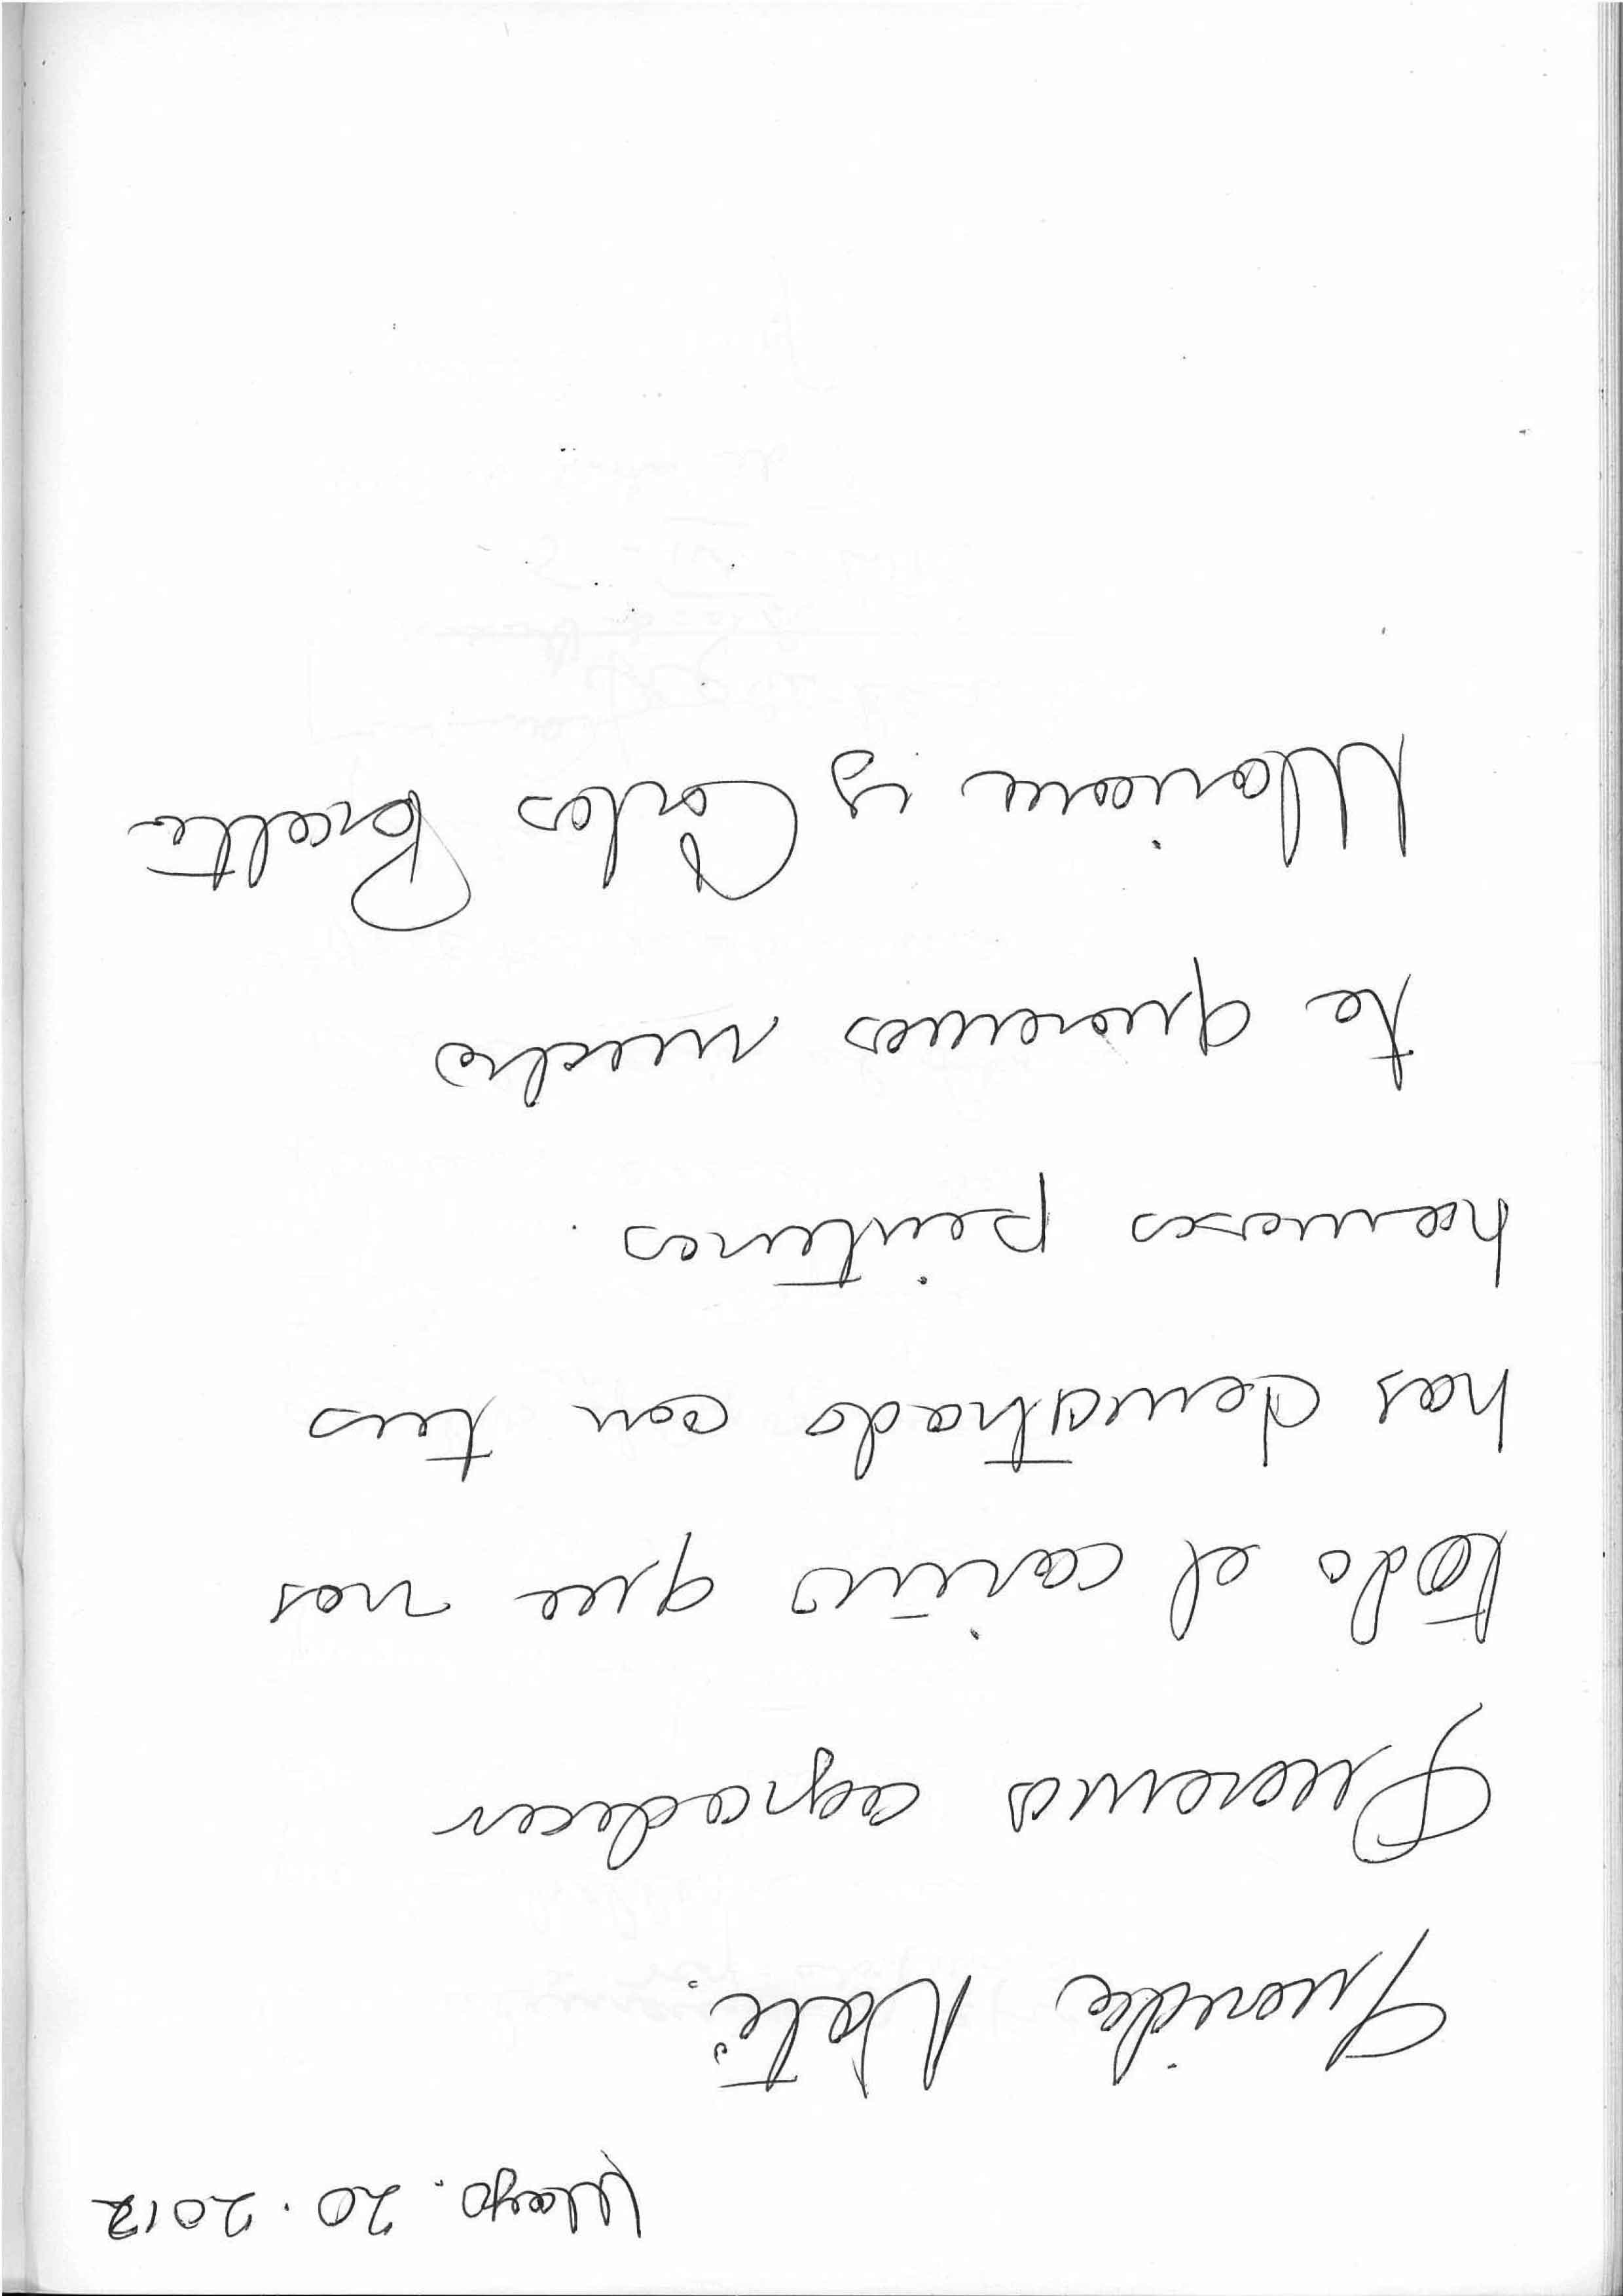 Mayo. 20. 2012
Querida Nati:
Queremos agradecer
todo el cariño que nos
has demostrado con tus
hermosas pinturas.
te queremos mucho
Mariana y Carlos